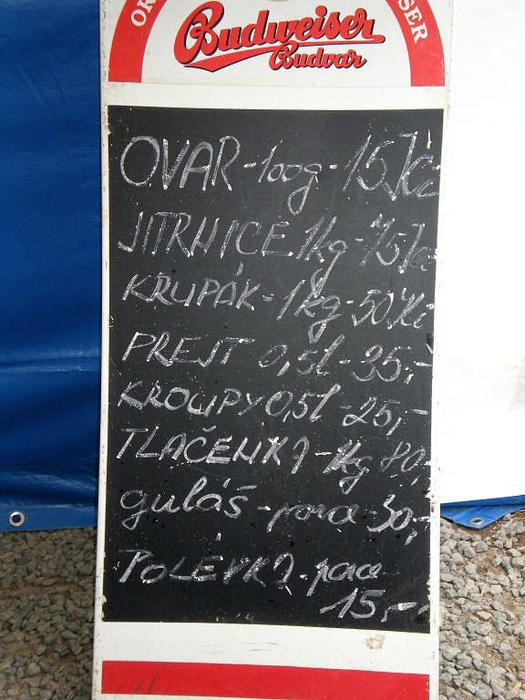 Budweiser
Budvar
OVAR - 100g - 15 Kč
JITRNICE 1kg - 75 Kč
KRUPÁK - 1kg - 50 Kč
PREJT 0,5l - 35,-
KROUPY 0,5l - 25,-
TLAČENKA - 1kg 80,-
guláš - porce 30,-
POLÉVKA - porce
15,-